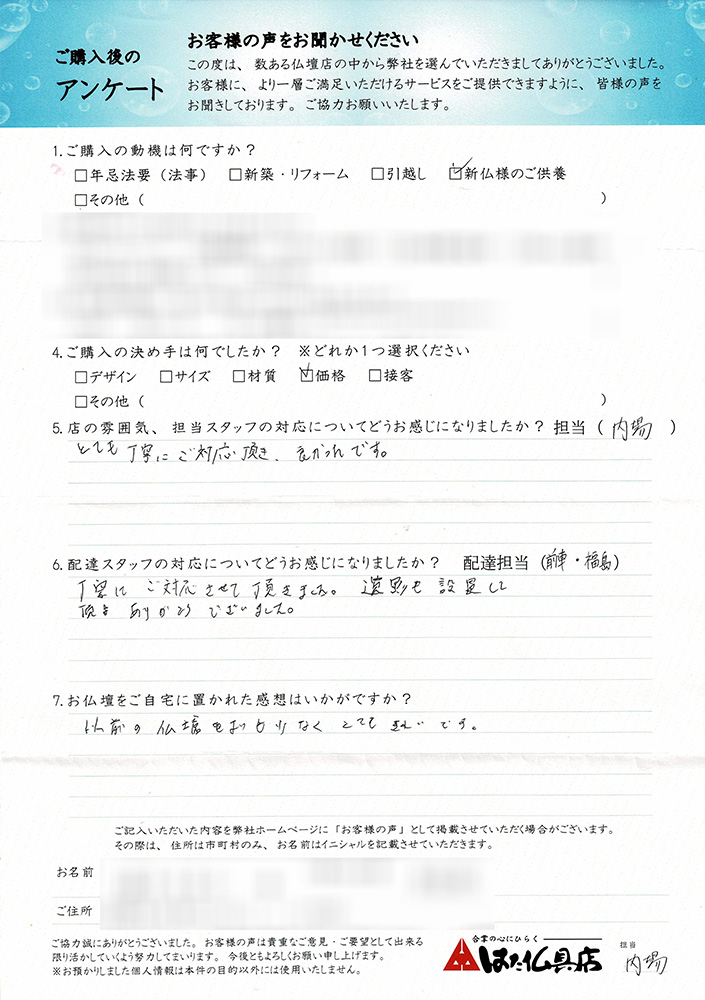 ご購入後の
アンケート
お客様の声をお聞かせください
この度は、数ある仏壇店の中から弊社を選んでいただきましてありがとうございました。
お客様に、より一層ご満足いただけるサービスをご提供できますように、皆様の声を
お聞きしております。ご協力お願いいたします。
1.ご購入の動機は何ですか？
□年忌法要（法事） □新築・リフォーム □引越し ☑新仏様のご供養
□その他（ ）
4.ご購入の決め手は何でしたか？ ※どれか1つ選択ください
□デザイン □サイズ □材質 ☑価格 □接客
□その他（ ）
5.店の雰囲気、担当スタッフの対応についてどうお感じになりましたか？担当（内場）
とても丁寧にご対応頂き、良かったです。
6.配達スタッフの対応についてどうお感じになりましたか？ 配達担当（前車・福島）
丁寧にご対応させて頂きました。遺影も設置して
頂き ありがとうございました。
7.お仏壇をご自宅に置かれた感想はいかがですか？
以前の仏壇 なくとても です。
ご記入いただいた内容を弊社ホームページに「お客様の声」として掲載させていただく場合がございます。
その際は、住所は市町村のみ、お名前はイニシャルを記載させていただきます。
お名前
ご住所
ご協力誠にありがとうございました。お客様の声は貴重なご意見・ご要望として出来る
限り活かしていくよう努力してまいります。今後ともよろしくお願い申し上げます。
※お預かりしました個人情報は本件の目的以外には使用いたしません。
合掌の心にひらく
はた仏具店
担当
内場